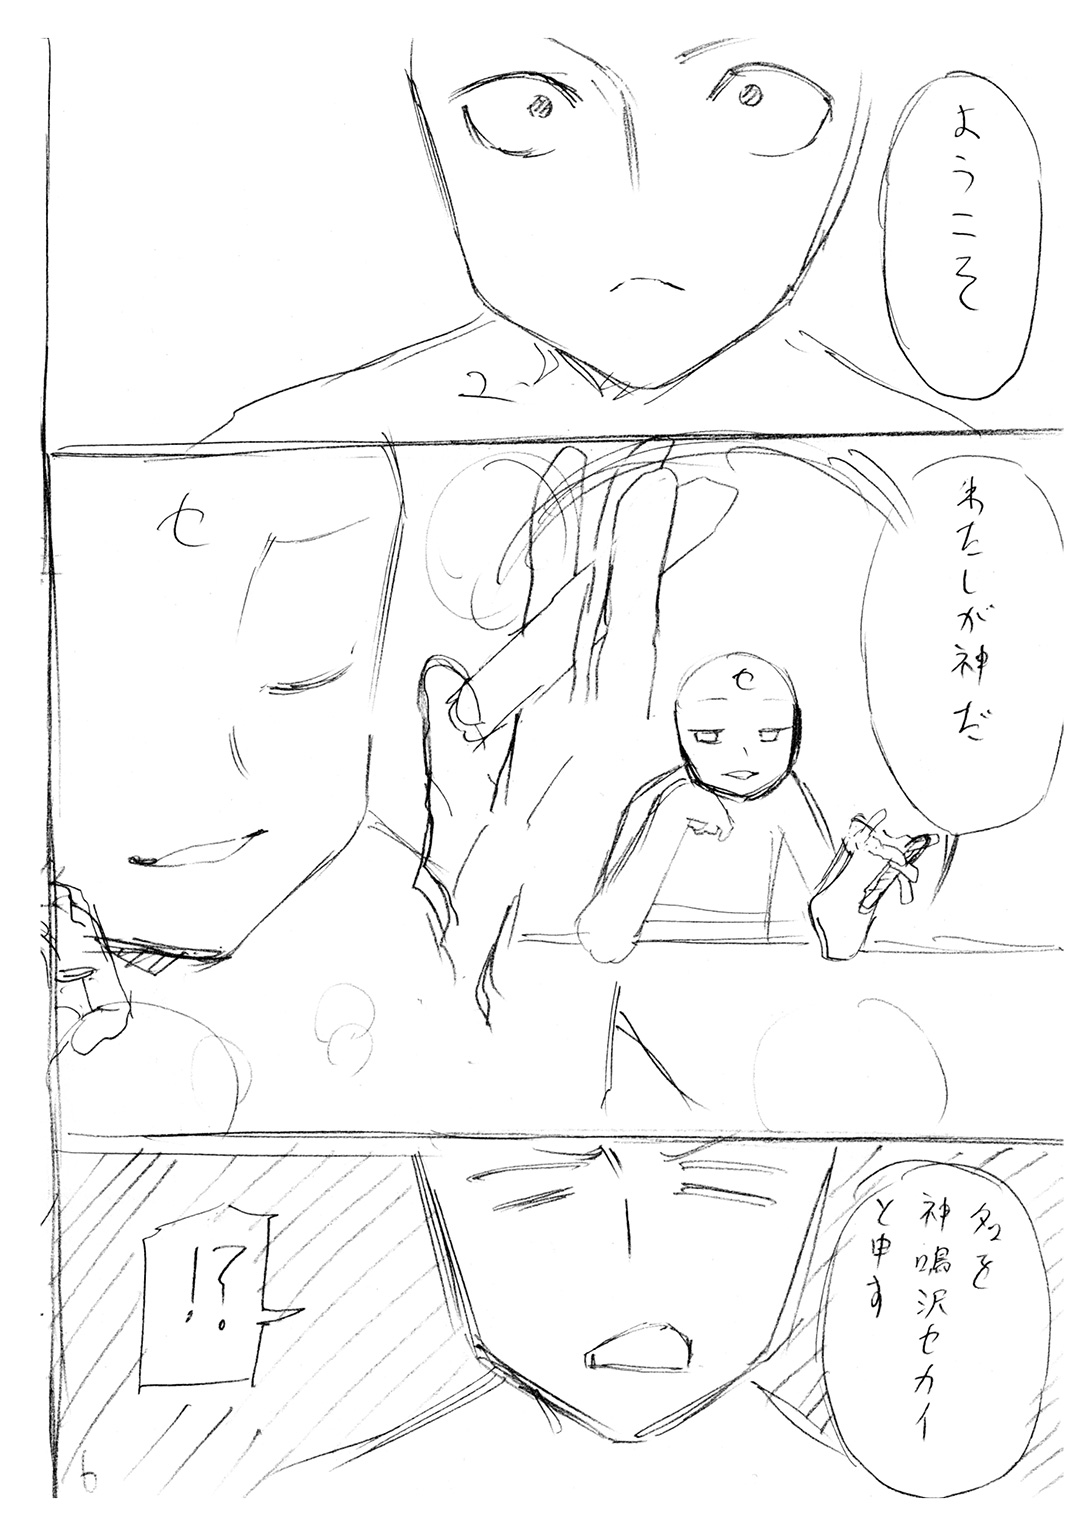 ようこそ
ユ
わたしが神だ
セ
セ
名を
神鳴沢セカイ
と申す
!?
6